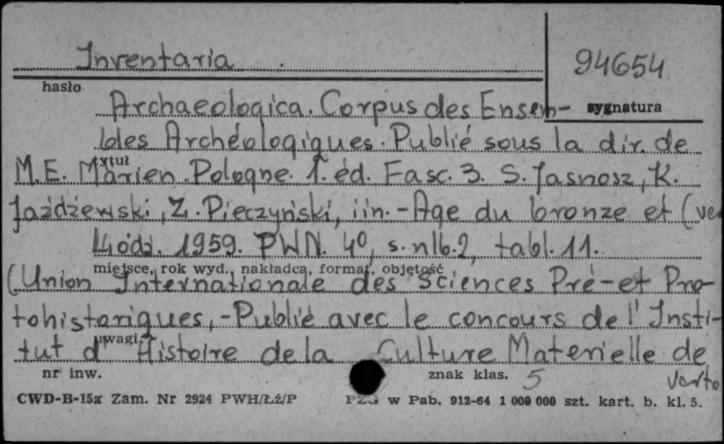 Inventaria
94654
hasło
sygnatura
Archaeologica. Corpus des Ensem-
bles Archéologiques. Publié sous la dir. de
tytuł
M.E. Mariën. Pologne. 1. éd. Fasc. 3. S. Jasnosz, K.
Jażdżewski, Z. Pieczyński, i in. - Age du bronze et (ver
Łódź. 1959. PWN. 4º, s. nlb. 2, tabl. 11.
miejsce, rok wyd., nakładca, format, objętość
(Union Internationale des Sciences Pré- et Pro-
tohistoriques, - Publié avec le concours de l'Insti-
uwagi
tut d'Histoire de la Culture Materielle de
nr inw.
znak klas. 5
verto
CWD-B-15a Zam. Nr 2924 PWH/Łź/P
PZG w Pab. 912-64 1 000 000 szt. kart. b. kl. 5.